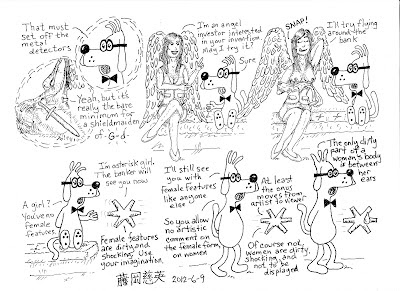 That must
set off the
metal
detectors
Yeah, but it's
really the bare
minimum for
a shieldmaiden
of G-d.
I'm an angel
investor interested
in your invention.
May I try it?
Sure
SNAP!
I'll try flying
around the
bank
A girl?
You've no
female
features.
I'm asterisk girl.
The banker will
see you now
Female features
are dirty and
shocking. Use
your imagination.
I'll still see
you with
female features
like anyone
else
So you allow
no artistic
comment on
the female form,
on women
At least
the onus
moves from
artist to viewer
Of course not,
women are dirty,
shocking, and
not to be
displayed
The only dirty
part of a
woman's body
is between
her
ears
藤岡慈英 2012-6-9